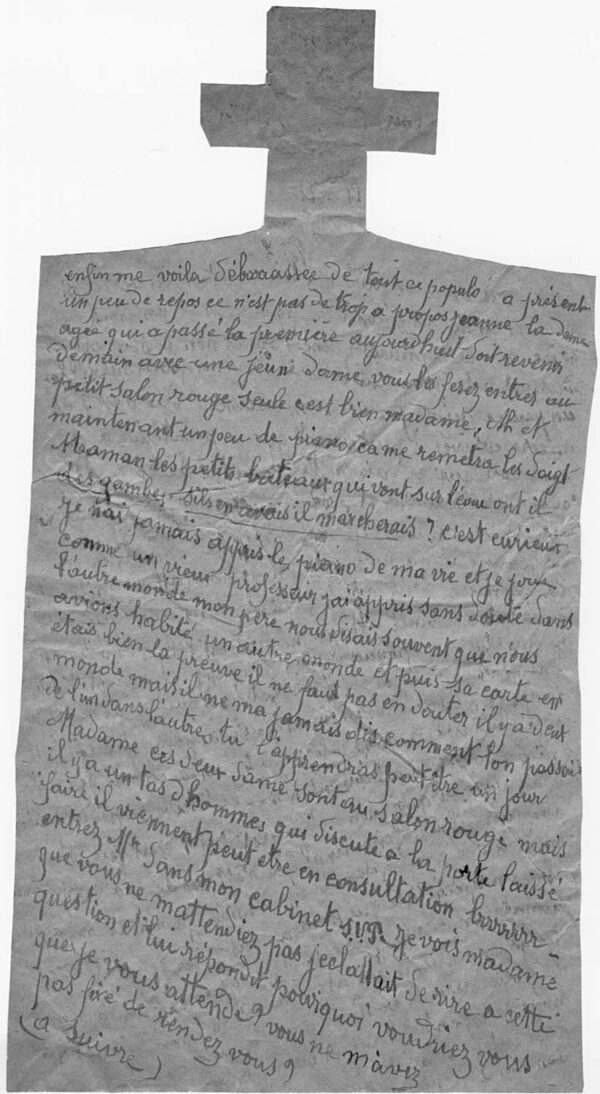 enfin me voila débaaassée de tout ce populo a présent
un peu de repos ce n'est pas de trop a propos jeanne la dame
agée qui a passé la première aujourdhuit doit revenir
demain avec une jeune dame vous les ferez entrer au
petit salon rouge seule c'est bien madame, Ah et
maintenant un peu de piano ça me remetra les doigt
Maman les petits bateaux qui vont sur l'eau ont il
des gambes sils en avais il marcherais ? c'est curieux
je n'ai jamais appris le piano de ma vie et je joue
comme un vieux professeur j'ai appris sans doute dans
l'autre monde mon père nous disais souvent que nous
avions habité un autre monde et puis sa carte en
étais bien la preuve il ne faut pas en douter il y a deux
monde mais il ne ma jamais dis comment l'on passait
de l'un dans l'autre, tu l'apprendras peut être un jour
Madame ces deux dame sont au salon rouge mais
il y a un tas d'hommes qui discute a la porte laissé
faire il viennent peut etre en consultation brrrrrrr
entrez Mr dans mon cabinet S.V.P. je vois madame
que vous ne mattendiez pas jeclattait de rire a cette
question et lui répondit pourquoi voudriez vous
que je vous attende ? vous ne m'avez
pas fixé de rendez vous ?
(a suivre)